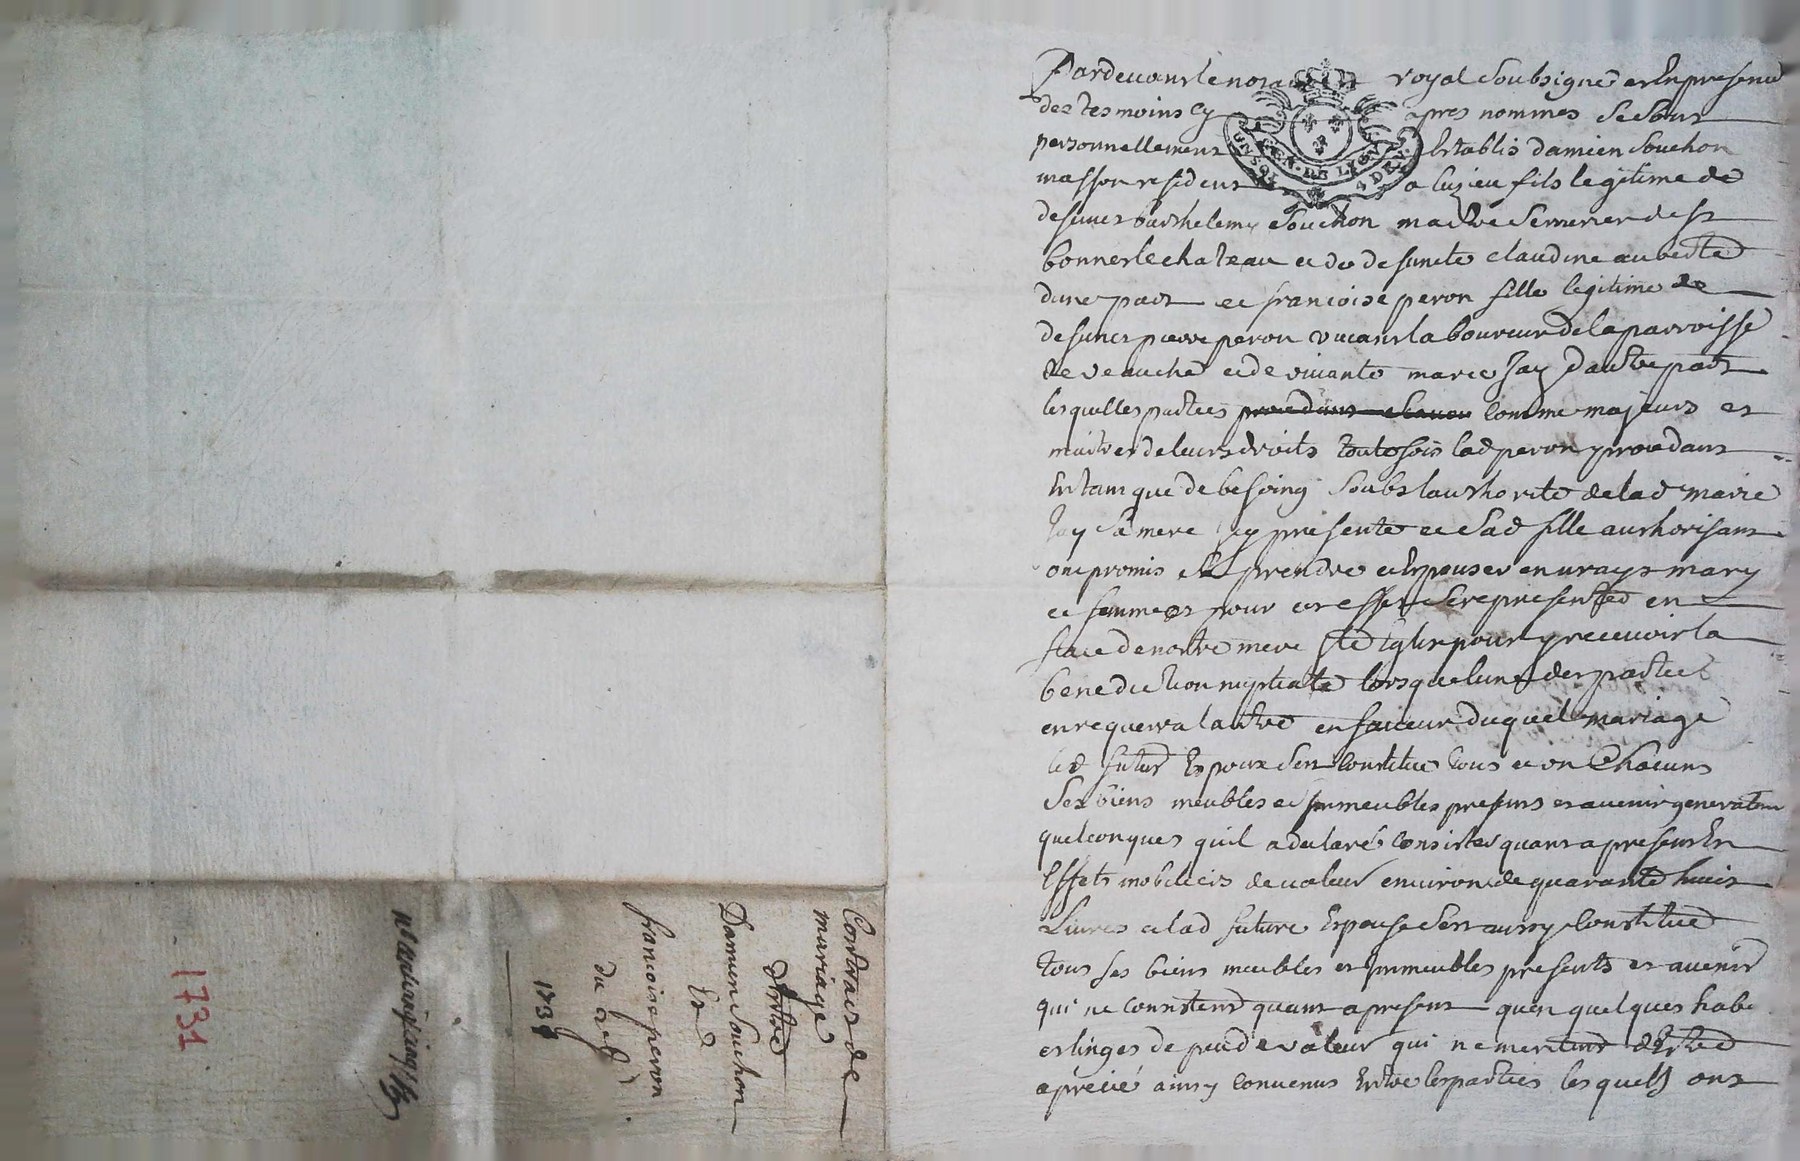 Pardevant le notaire royal soubsigné et en presence
des tesmoins cy apres nommés se sont
personnellement establis damien Souchon
masson resident a luzieu fils legitime de
defunct barthelemy Souchon maitre serrurier de st
bonnet le chateau et de defuncte claudine
dune part et francoise peron fille legitime de
defunct pierre peron vivant laboureur de la parroisse
de veauche et de vivante marie Jay dautre part
lesquelles parties comme majeurs et
maitres de leurs droits toutefois lad peron procedant
en tant que de besoing soubs lauthorité de lad marie
Jay sa mere icy presente et sad fille authorisant
ont promis se prendre et espouser en vrays mary
et femme et pour cet effet se representer en
face de notre mere ste Eglise pour y recevoir la
benediction nuptiale lorsque lune des parties
en requerra lautre en faveur duquel mariage
led futur Espoux sest constitué tous et un chacuns
ses biens meubles et immeubles presents et avenir generalem
quelconques quil a declaré consister quant a present en
Effets mobiliers de valeur environ de quarante huit
Livres et lad future Espouse sest aussy constitué
tous ses biens meubles et immeubles presents et avenir
qui ne consistent quant a present quen quelques habe
et linges de peu de valeur qui ne meritent destre
aprecié ainsy convenus entre les parties lesquels ont
Contract de
mariage
d'entre
Damien Souchon
Et
francoise peron
du
173
1731